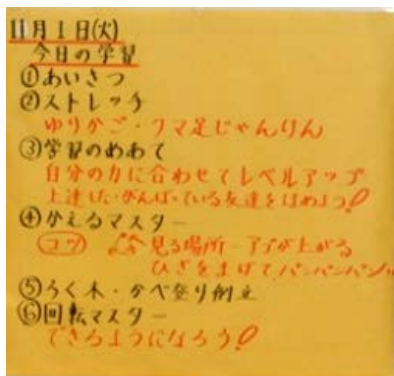 11月1日(火)
今日の学習
①あいさつ
②ストレッチ
ゆりかご・クマ足じゃんけん
③学習のめあて
自分の力に合わせてレベルアップ
上達した・がんばっている友達をほめよう!
④かえるマスター
コツ 見る場所 アゴが上がる
ひざをまげてパンパンパンッ
⑤ろく木・かべ登り倒立
⑥回転マスター
できるようになろう!